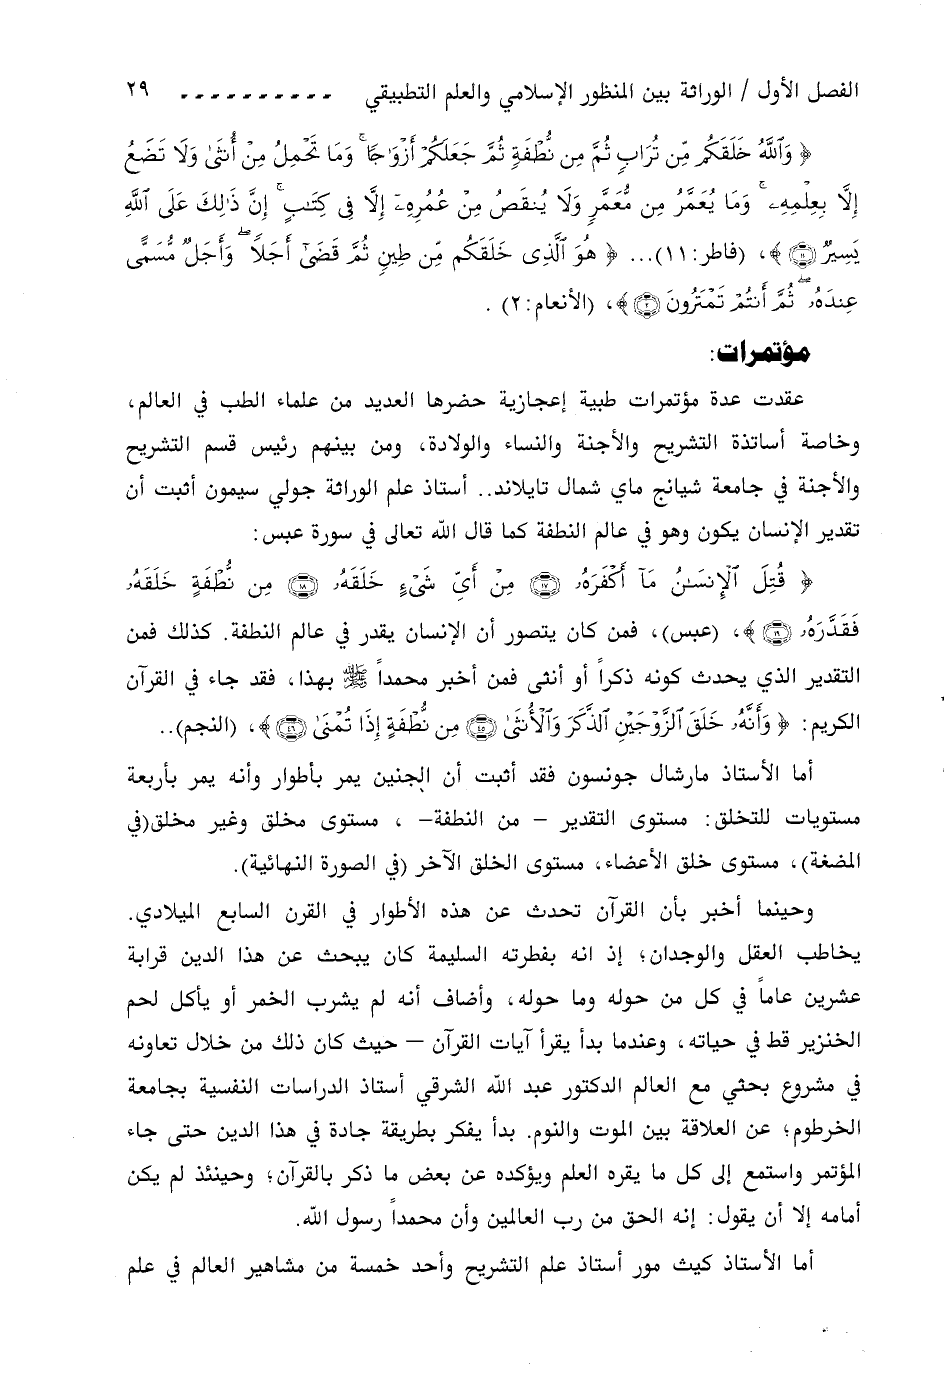 الفصل الأول / الوراثة بين المنظور الإسلامي والعلم التطبيقي ---------- ٢٩
﴿ وَٱللَّهُ خَلَقَكُم مِّن تُرَابٍ ثُمَّ مِن نُّطْفَةٍ ثُمَّ جَعَلَكُمْ أَزْوَٰجًا ۚ وَمَا تَحْمِلُ مِنْ أُنثَىٰ وَلَا تَضَعُ
إِلَّا بِعِلْمِهِۦ ۚ وَمَا يُعَمَّرُ مِن مُّعَمَّرٍ وَلَا يُنقَصُ مِنْ عُمُرِهِۦٓ إِلَّا فِى كِتَٰبٍ ۚ إِنَّ ذَٰلِكَ عَلَى ٱللَّهِ
يَسِيرٌ ۝١١ ﴾، (فاطر:١١)... ﴿ هُوَ ٱلَّذِى خَلَقَكُم مِّن طِينٍ ثُمَّ قَضَىٰٓ أَجَلًا ۖ وَأَجَلٌ مُّسَمًّى
عِندَهُۥ ۖ ثُمَّ أَنتُمْ تَمْتَرُونَ ۝٢ ﴾، (الأنعام:٢) .
مؤتمرات:
عقدت عدة مؤتمرات طبية إعجازية حضرها العديد من علماء الطب في العالم،
وخاصة أساتذة التشريح والأجنة والنساء والولادة، ومن بينهم رئيس قسم التشريح
والأجنة في جامعة شيانج ماي شمال تايلاند.. أستاذ علم الوراثة جولي سيمون أثبت أن
تقدير الإنسان يكون وهو في عالم النطفة كما قال الله تعالى في سورة عبس:
﴿ قُتِلَ ٱلْإِنسَٰنُ مَآ أَكْفَرَهُۥ ۝١٧ مِنْ أَىِّ شَىْءٍ خَلَقَهُۥ ۝١٨ مِن نُّطْفَةٍ خَلَقَهُۥ
فَقَدَّرَهُۥ ۝١٩ ﴾، (عبس)، فمن كان يتصور أن الإنسان يقدر في عالم النطفة. كذلك فمن
التقدير الذي يحدث كونه ذكراً أو أنثى فمن أخبر محمداً ﷺ بهذا، فقد جاء في القرآن
الكريم: ﴿ وَأَنَّهُۥ خَلَقَ ٱلزَّوْجَيْنِ ٱلذَّكَرَ وَٱلْأُنثَىٰ ۝٤٥ مِن نُّطْفَةٍ إِذَا تُمْنَىٰ ۝٤٦ ﴾، (النجم)..
أما الأستاذ مارشال جونسون فقد أثبت أن الجنين يمر بأطوار وأنه يمر بأربعة
مستويات للتخلق: مستوى التقدير – من النطفة– ، مستوى مخلق وغير مخلق(في
المضغة)، مستوى خلق الأعضاء، مستوى الخلق الآخر (في الصورة النهائية).
وحينما أخبر بأن القرآن تحدث عن هذه الأطوار في القرن السابع الميلادي.
يخاطب العقل والوجدان؛ إذ انه بفطرته السليمة كان يبحث عن هذا الدين قرابة
عشرين عاماً في كل من حوله وما حوله، وأضاف أنه لم يشرب الخمر أو يأكل لحم
الخنزير قط في حياته، وعندما بدأ يقرأ آيات القرآن – حيث كان ذلك من خلال تعاونه
في مشروع بحثي مع العالم الدكتور عبد الله الشرقي أستاذ الدراسات النفسية بجامعة
الخرطوم؛ عن العلاقة بين الموت والنوم. بدأ يفكر بطريقة جادة في هذا الدين حتى جاء
المؤتمر واستمع إلى كل ما يقره العلم ويؤكده عن بعض ما ذكر بالقرآن؛ وحينئذ لم يكن
أمامه إلا أن يقول: إنه الحق من رب العالمين وأن محمداً رسول الله.
أما الأستاذ كيث مور أستاذ علم التشريح وأحد خمسة من مشاهير العالم في علم